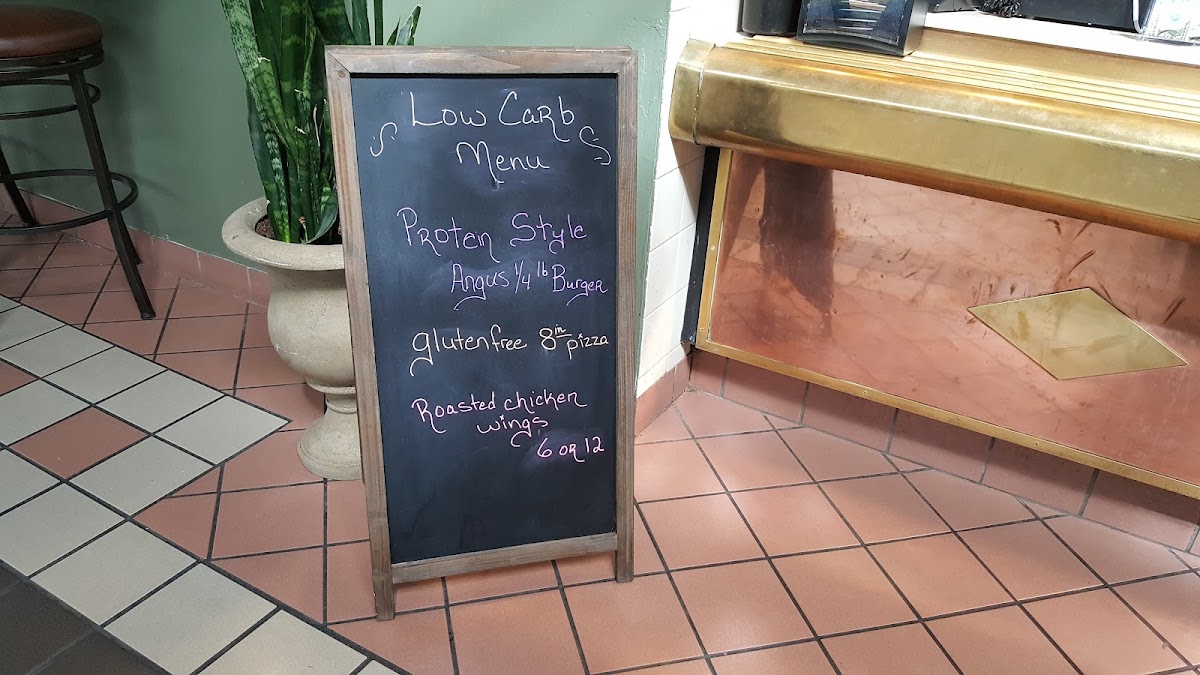 Low Carb
Menu
Protein Style
Angus 1/4 lb Burger
glutenfree 8in pizza
Roasted chicken
wings
6 or 12